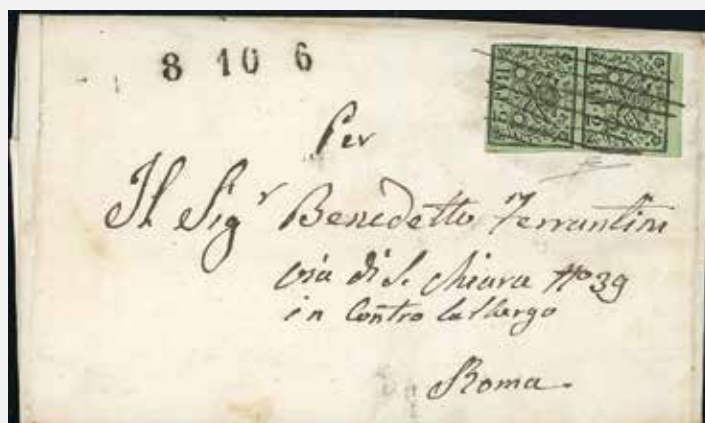 8 10 6
BAJ 2
BAJ 2
Per
Il Sigr Benedetto Ferrantini
via di S. Chiara No 39
in Contro l'albergo
Roma